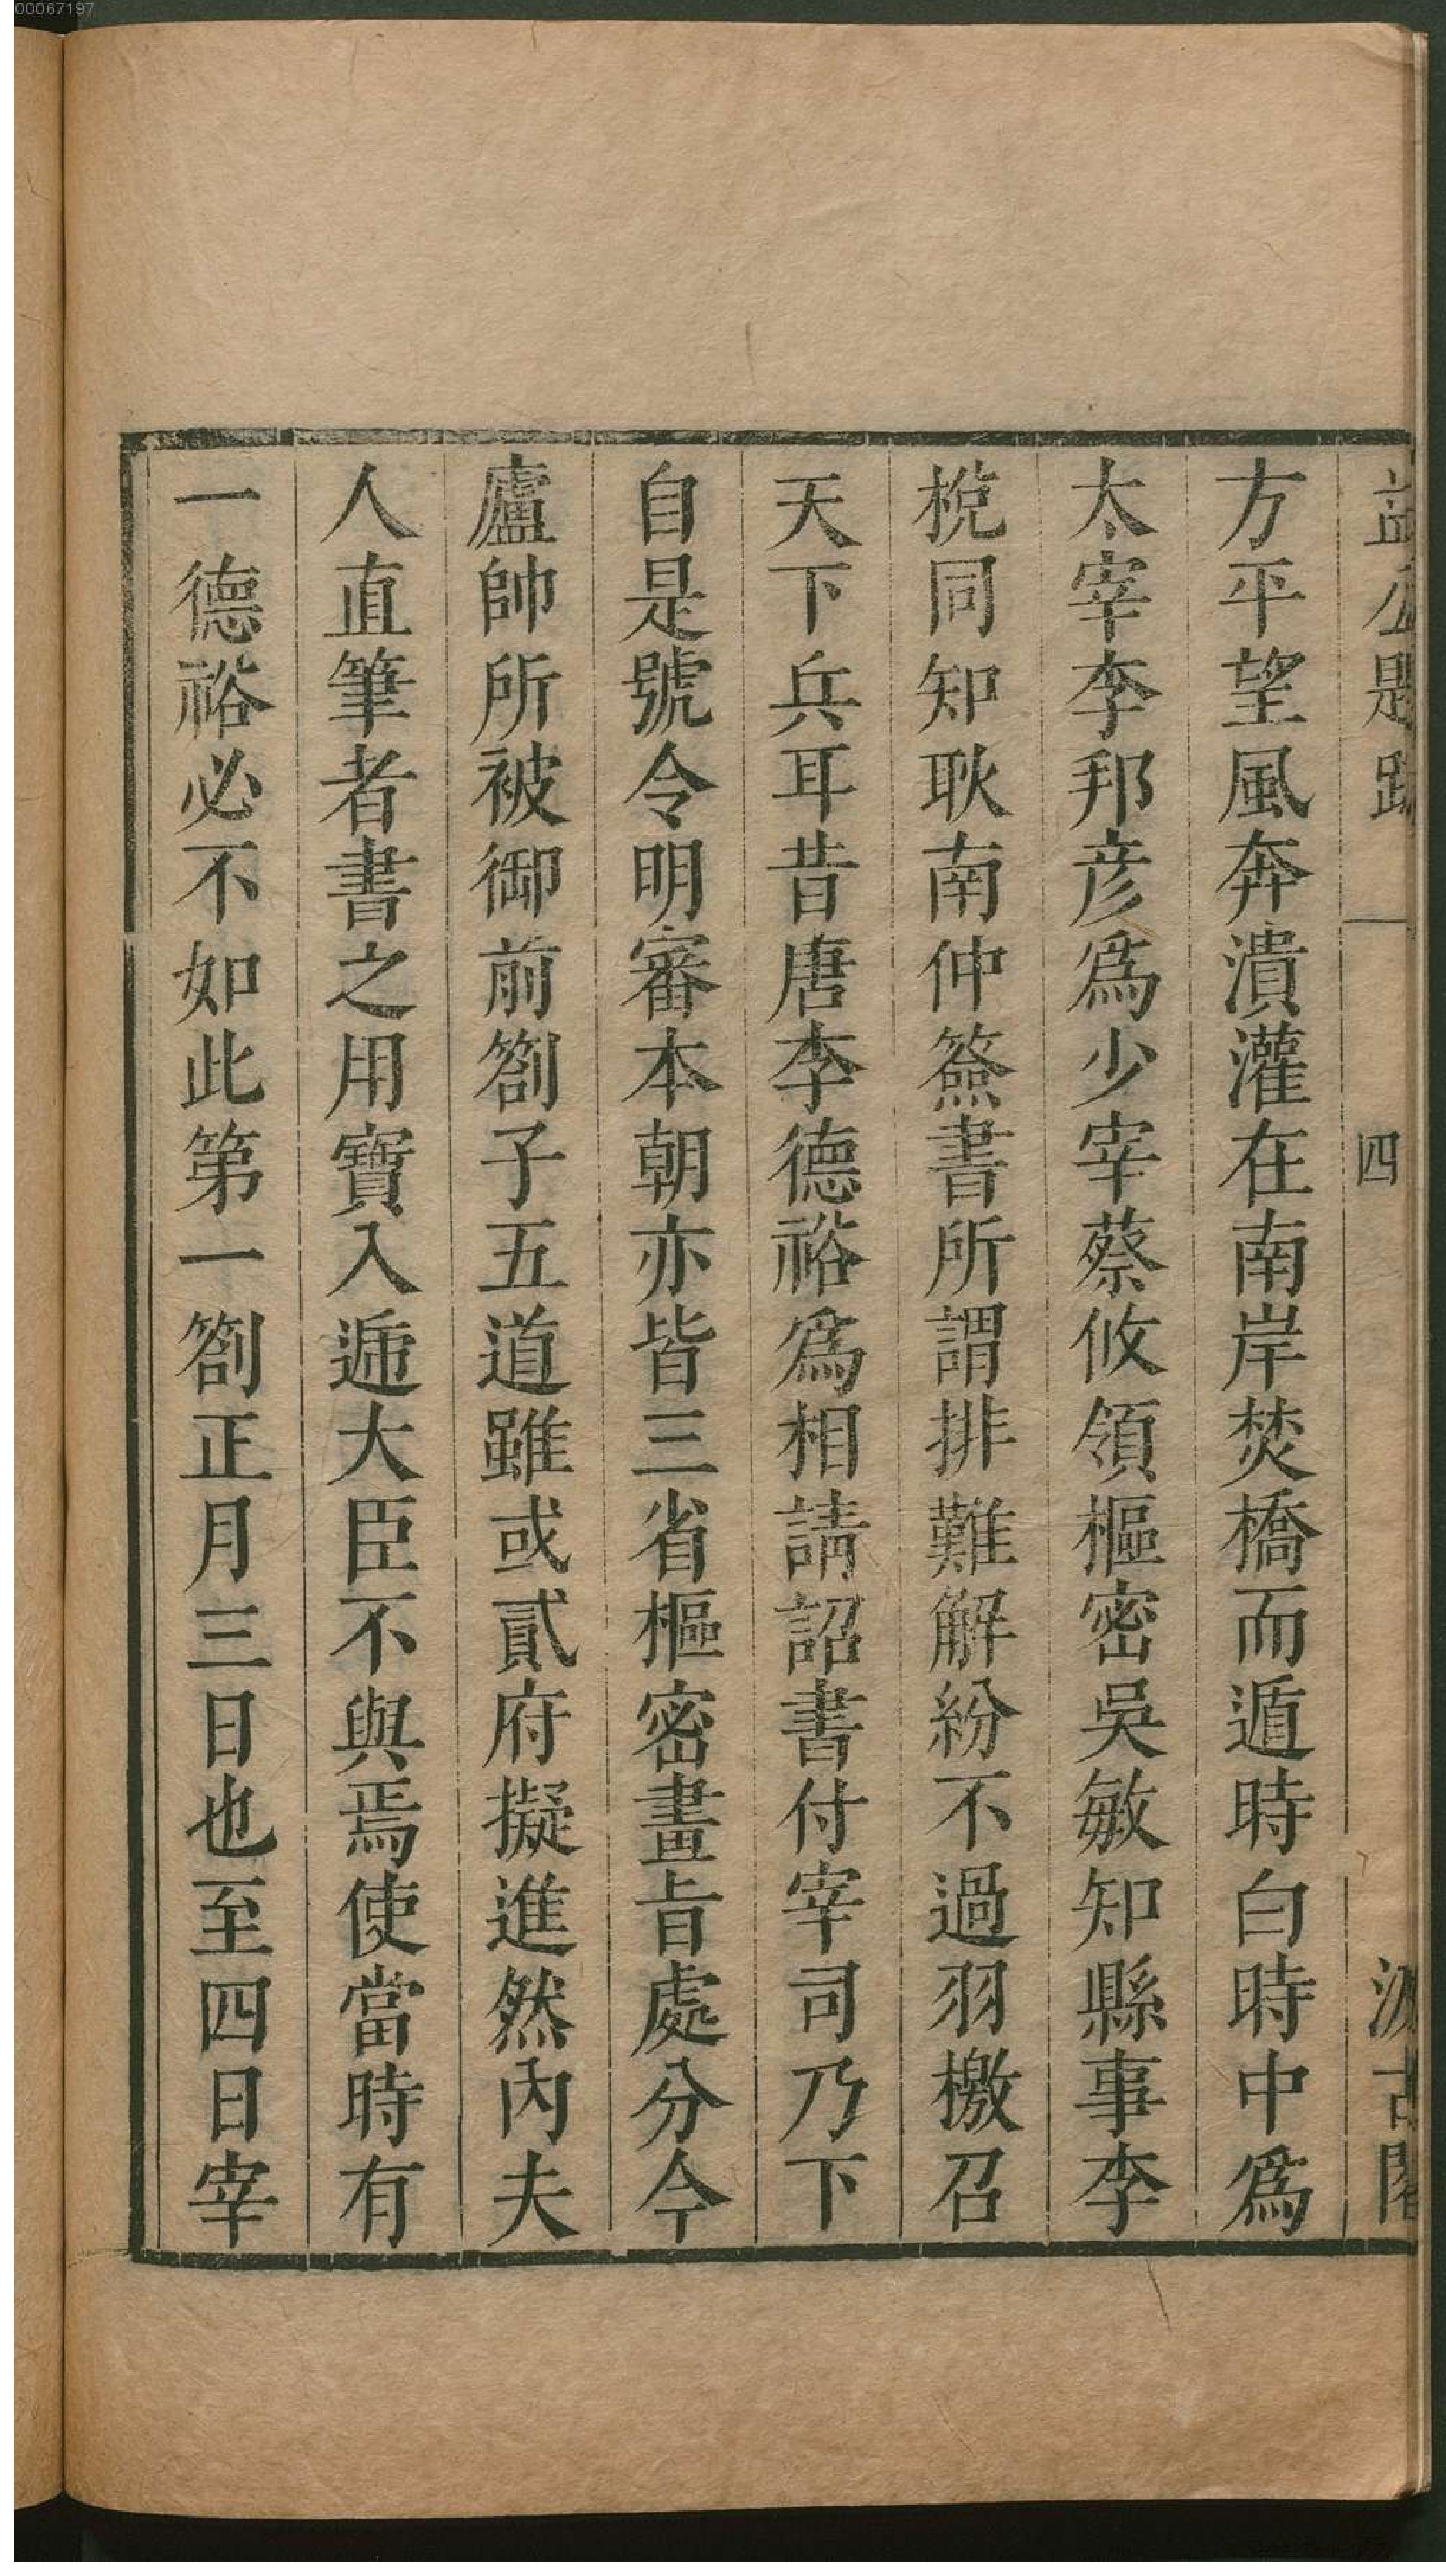 00067197
益公題跋 四 汲古閣
方平望風奔潰灌在南岸焚橋而遁時白時中爲
太宰李邦彦爲少宰蔡攸領樞密吳敏知縣事李
梲同知耿南仲簽書所謂排難解紛不過羽檄召
天下兵耳昔唐李德裕爲相請詔書付宰司乃下
自是號令明審本朝亦皆三省樞密畫旨處分今
廬帥所被御前劄子五道雖或貳府擬進然內夫
人直筆者書之用寶入遞大臣不與焉使當時有
一德裕必不如此第一劄正月三日也至四日宰